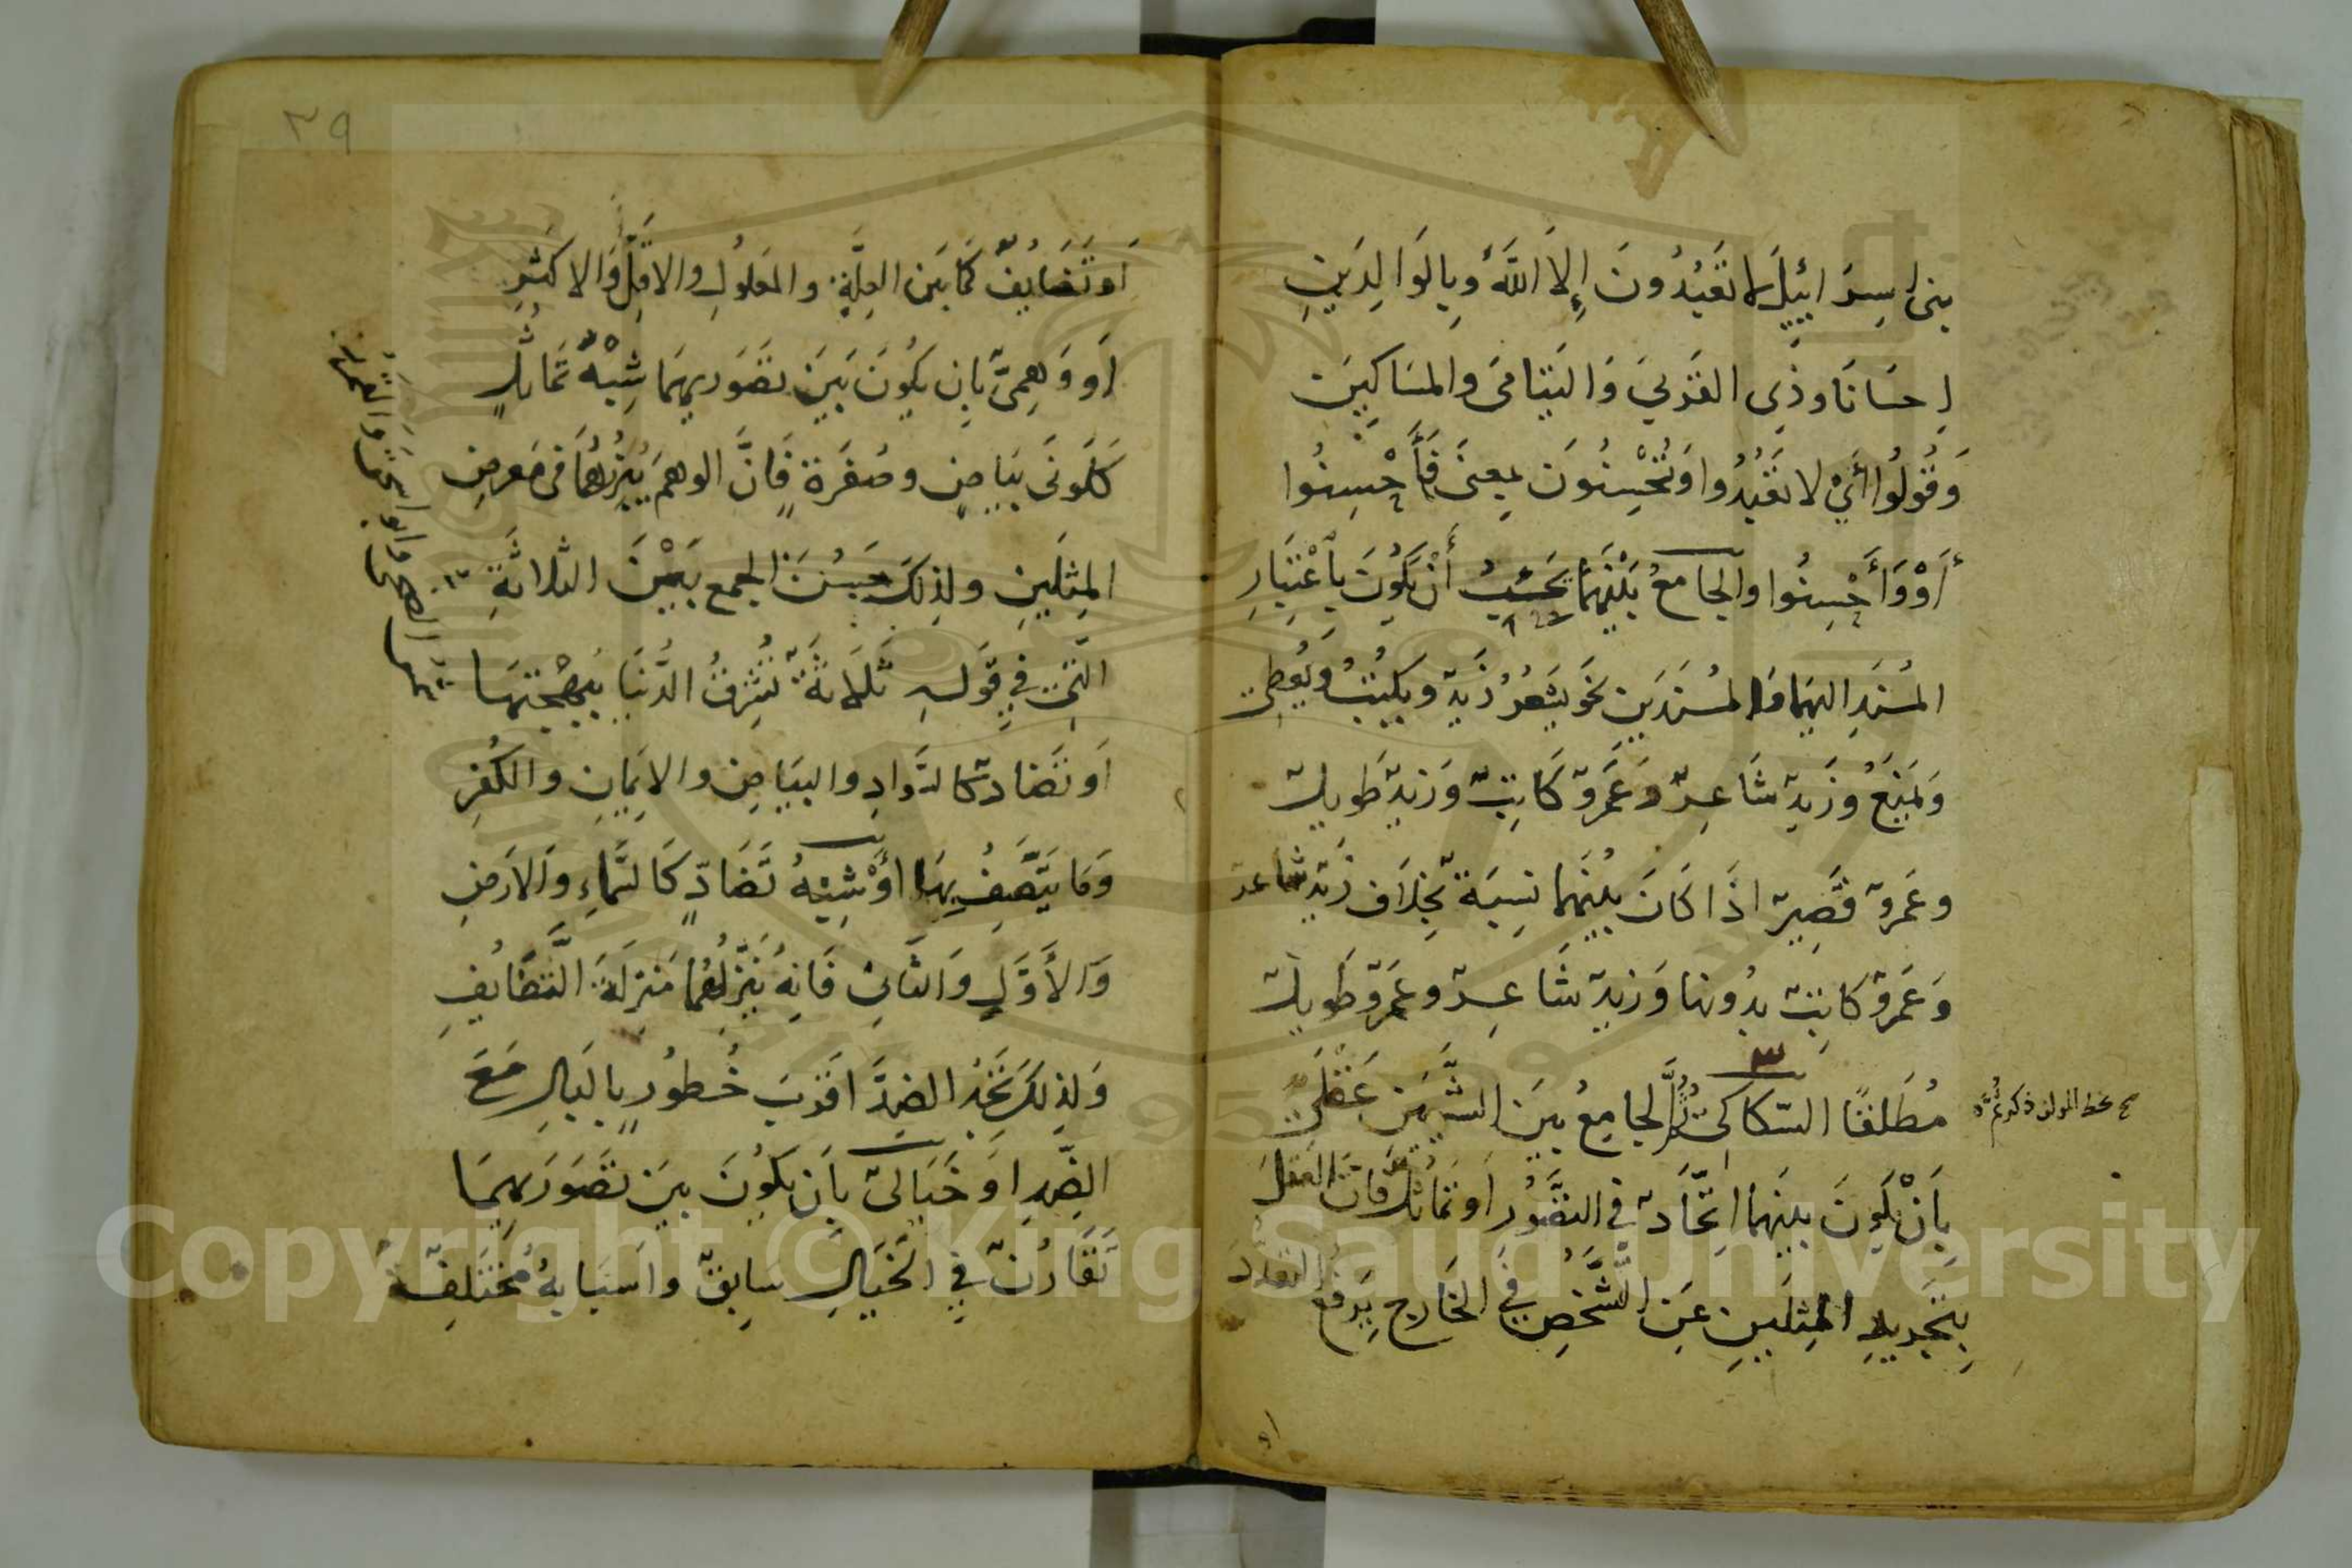 بني إسرائيل لا تعبدون إلا الله وبالوالدين
إحسانا وذي القربى واليتامى والمساكين
وقولوا أي لا تعبدوا وتحسنون بمعنى فأحسنوا
أو وأحسنوا والجامع بينهما يجب أن يكون باعتبار
المسند إليهما والمسندين نحو يشعر زيد ويكتب ويعطي
ويمنع وزيد شاعر وعمرو كاتب وزيد طويل
وعمرو قصير إذا كان بينهما نسبة بخلاف زيد شاعر
وعمرو كاتب بدونها وزيد شاعر وعمرو طويل
مطلقا السكاكي الجامع بين الشيئين عقلي
بأن يكون بينهما اتحاد في التصور أو تماثل فإن العقل
بتجريد المثلين عن التشخص في الخارج يرفع التعدد
أو
٣٩
أو تضايف كما بين العلة والمعلول والأقل والأكثر
أو وهمي بأن يكون بين تصوريهما شبه تماثل
كلوني بياض وصفرة فإن الوهم يبرزهما في معرض
المثلين ولذلك حسن الجمع بين الثلاثة
التي في قوله ثلاثة تشرق الدنيا ببهجتها
شمس الضحى وأبو إسحق والقمر
أو تضاد كالسواد والبياض والإيمان والكفر
وما يتصف بها أو شبه تضاد كالسماء والأرض
والأول والثاني فإنه ينزلهما منزلة التضايف
ولذلك تجد الضد أقرب خطور بالبال مع
الضد أو خيالي بأن يكون بين تصوريهما
تقارن في الخيال سابق وأسبابه مختلفة
Copyright © King Saud University